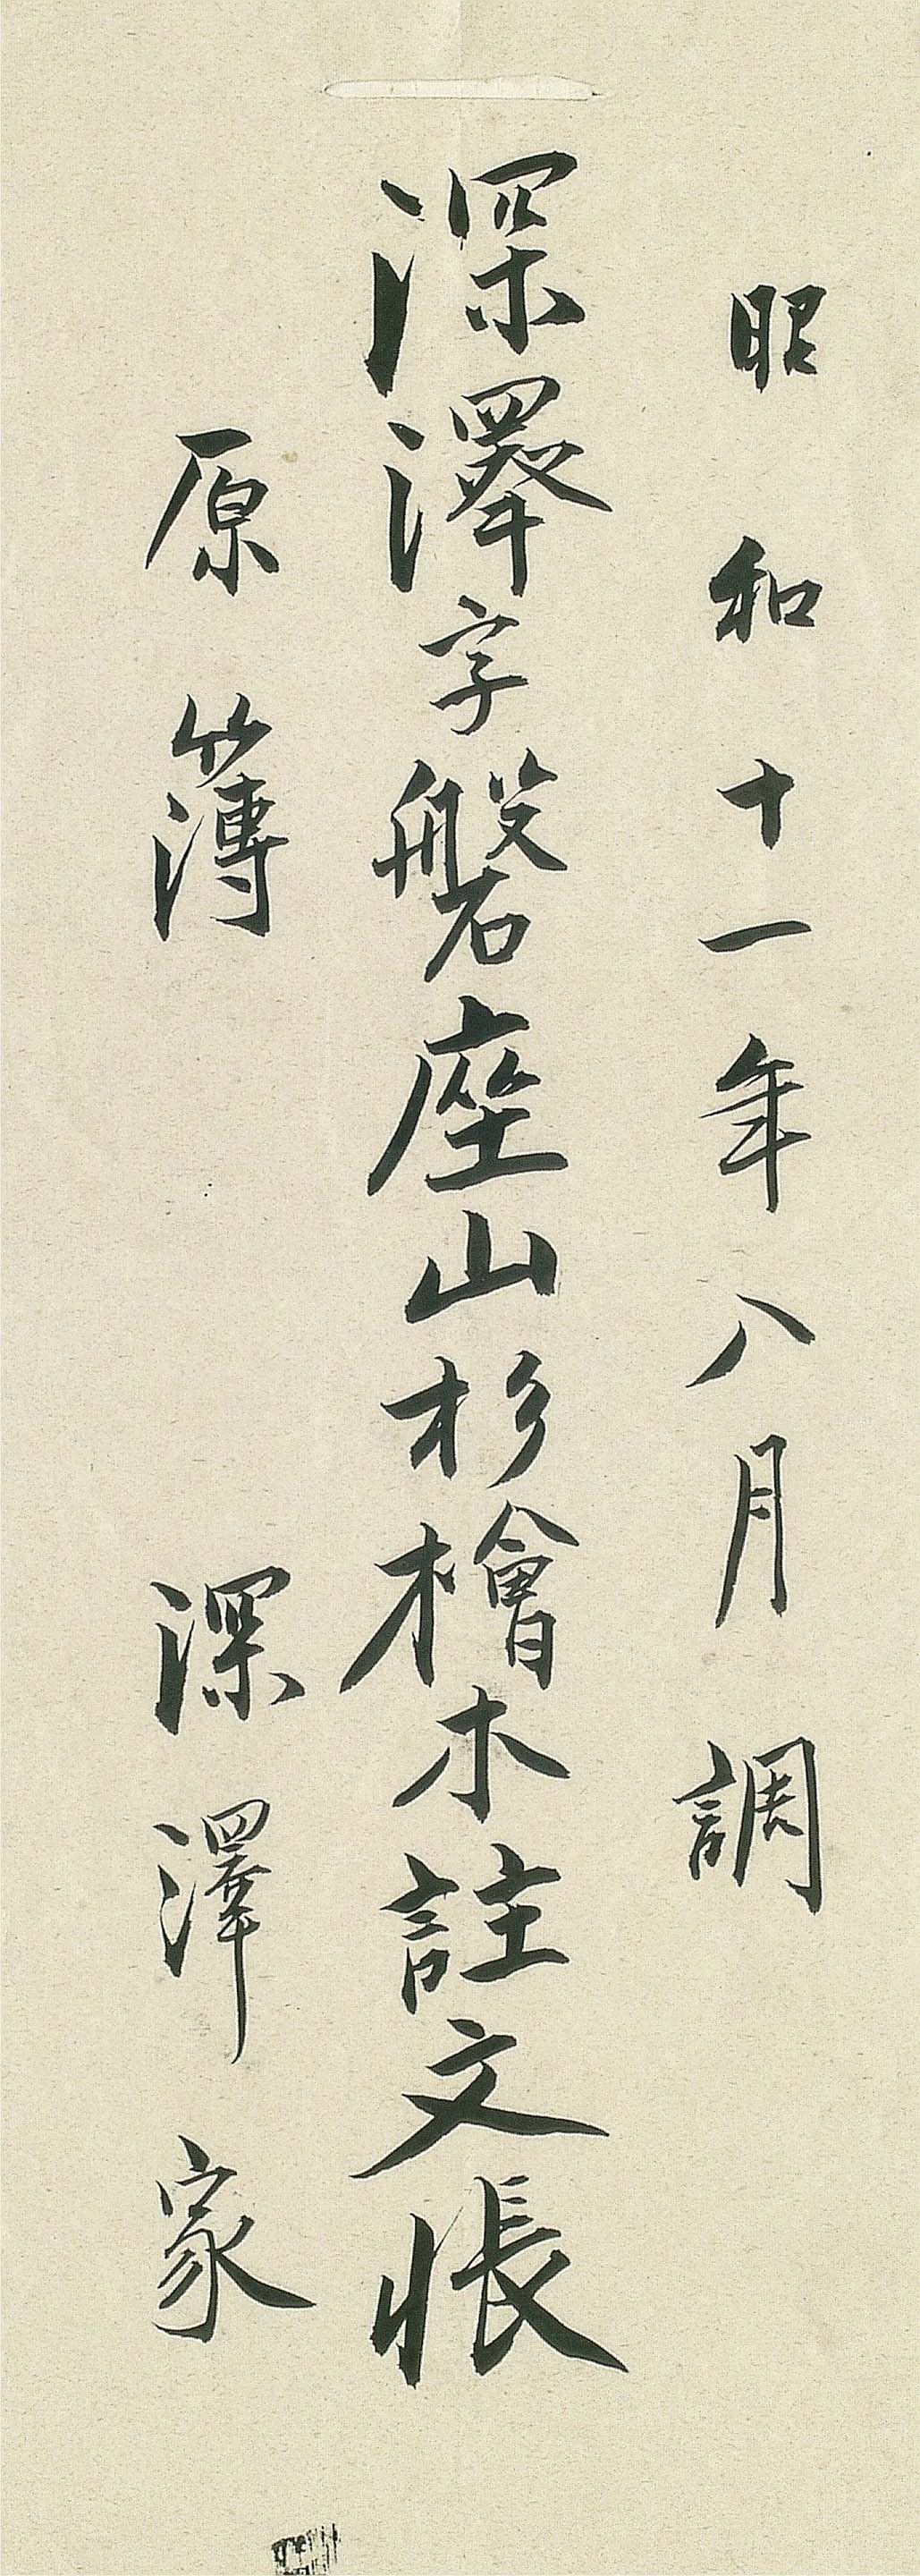 昭和十一年八月調
深澤字磐座山杉檜木註文帳
原簿 深澤家